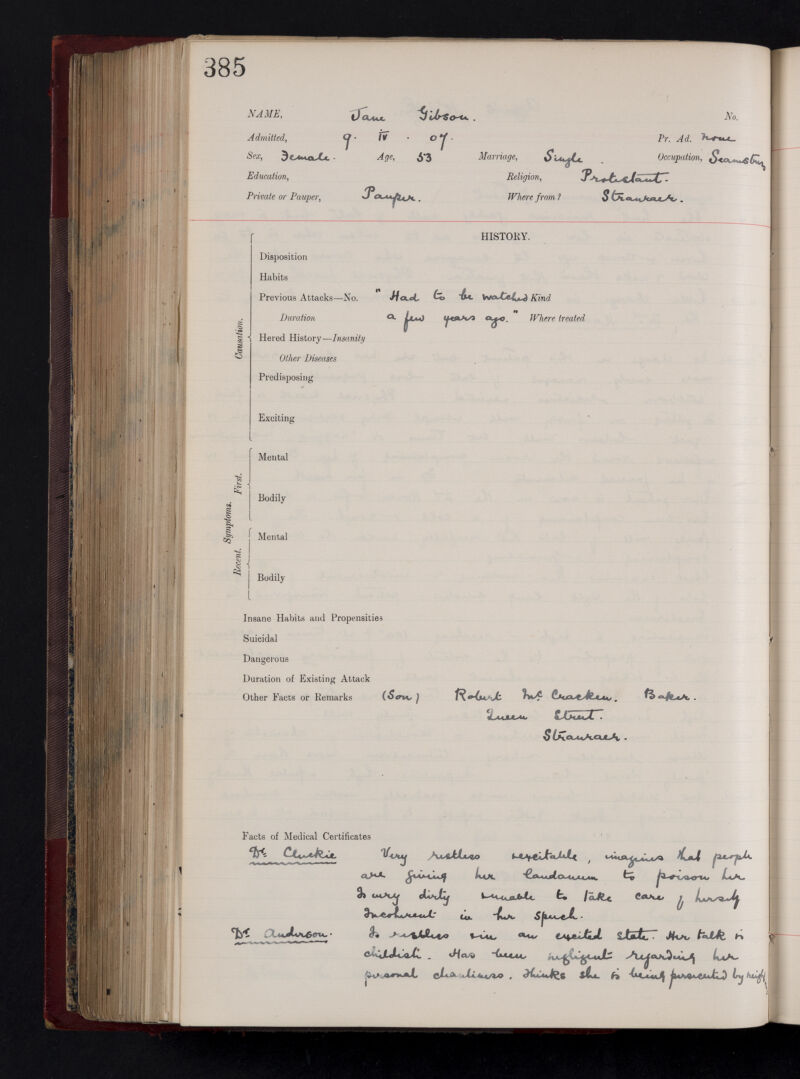 385
NAME, Jane Gibson. No.
Admitted, 9. IV. 07. Pr. Ad. none
Sex, Female. Age, 53 Marriage, Single. Occupation, Seamstress
Education, Religion, Protestant.
Private or Pauper, Pauper. Where from? Stranraer.
HISTORY.
Causation.
Disposition
Habits
Previous Attacks—No. "Had to be watched Kind
Duration a few years ago." Where treated
Hered History—Insanity
Other Diseases
Predisposing
Exciting
Symptoms. First.
Mental
Bodily
Recent.
Mental
Bodily
Insane Habits and Propensities
Suicidal
Dangerous
Duration of Existing Attack
Other Facts or Remarks (Son) Robert McCracken. Baker.
Queen Street.
Stranraer.
Facts of Medical Certificates
Dr. Cluckie Very restless & excitable, imagines that people
are giving her laudanum to poison her
Is very dirty & unable to take care of herself
Incoherent in her speech.
Dr. Anderson. Is restless & in an excited state. Her talk is
childish. Has been negligent regarding her
personal cleanliness. Thinks she is being persecuted by